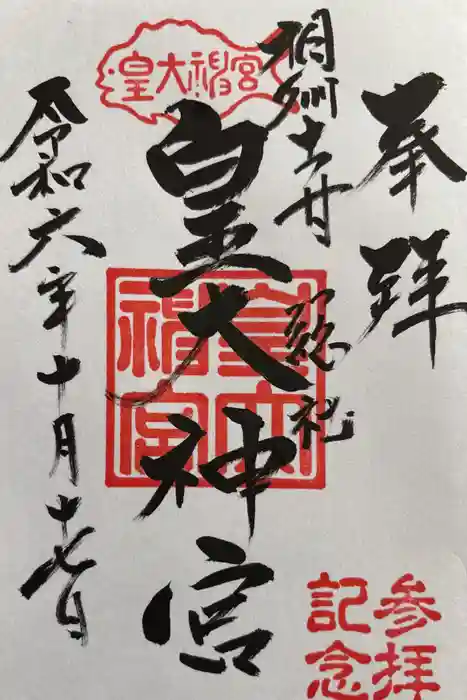 奉拝
相州土甘
総社
皇大神宮
皇大神宮
皇大
神宮
令和六年十月十七日
参拝
記念